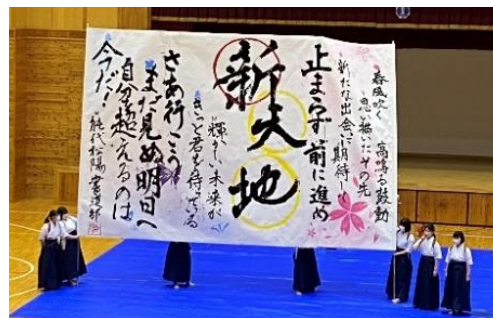 春風吹く 高鳴る鼓動
思い描いたその先
新たな出会いに期待し
止まらず前に進め
新天地
輝かしい未来が
きっと君を待っている
さあ行こう
まだ見ぬ明日へ
自分を超えるのは
今だ!
能代松陽書道部